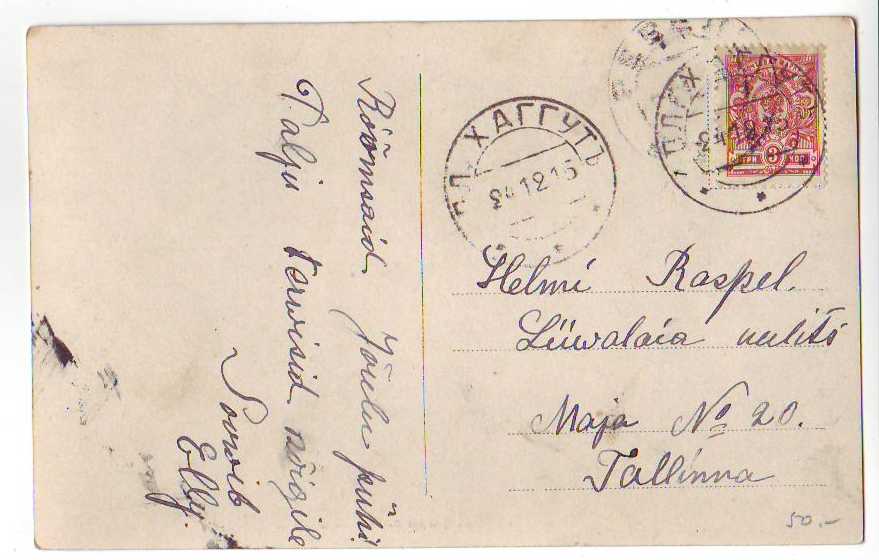 Rõõmsaid Jõulu pühi!
Palju terwisid kõigile
Soowib
Elly.
ПЛ. ХАГГУТЪ
24.12.15
24.12.15
ТРИ 3 КОП.
Helmi Raspel.
Liiwalaia uulits
Maja № 20.
Tallinna
50.-